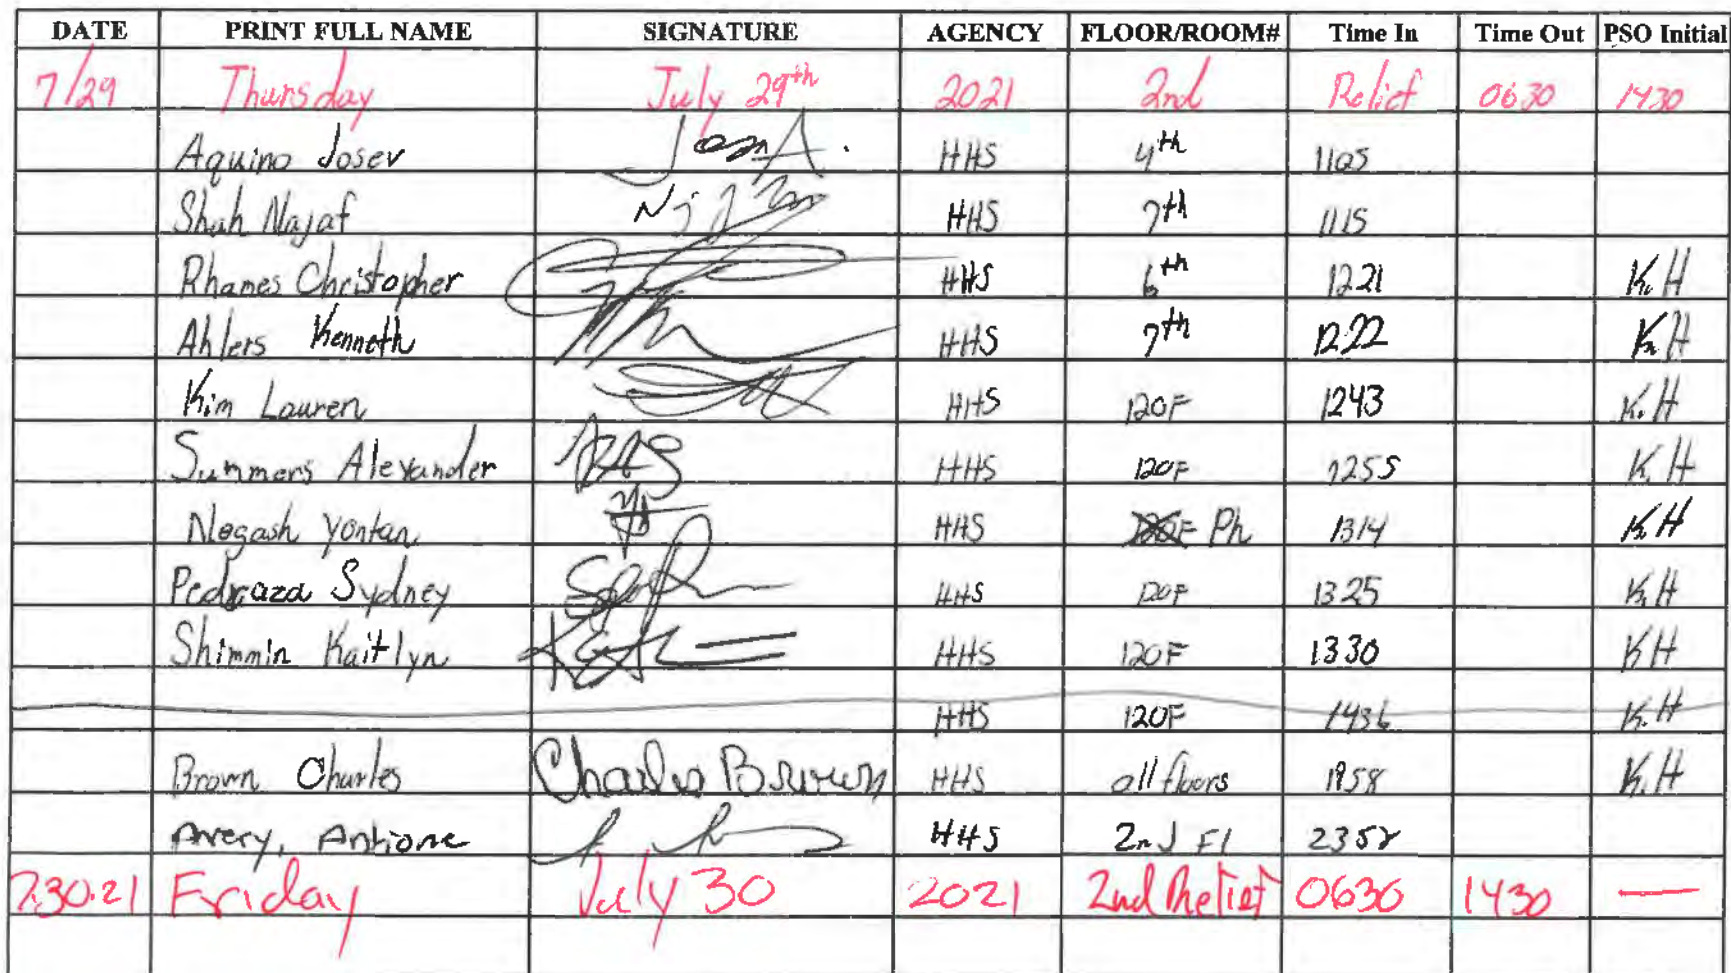 DATE PRINT FULL NAME SIGNATURE AGENCY FLOOR/ROOM# Time In Time Out PSO Initial
7/29 Thursday July 29th 2021 2nd Relief 0630 1430
Aquino Josev HHS 4th 1105
Shah Najaf HHS 7th 1115
Rhames Christopher HHS 6th 1221 K.H
Ahlers Kenneth HHS 7th 1222 K.H
Kim Lauren HHS 120F 1243 K.H
Summers Alexander HHS 120F 1255 K.H
Negash Yontan HHS Ph 1314 K.H
Pedraza Sydney HHS 120F 1325 K.H
Shimmin Kaitlyn HHS 120F 1330 KH
HHS 120F 1436 K.H
Brown Charles Charles Brown HHS all floors 1958 K.H
Avery, Antione HHS 2nd Fl 2358
7.30.21 Friday July 30 2021 2nd Relief 0630 1430 —